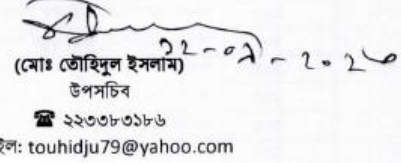 ১২-০৯-২০২৩
(মোঃ তৌহিদুল ইসলাম)
উপসচিব
☎ ২২৩৩৮৩১৮৬
ইল: touhidju79@yahoo.com